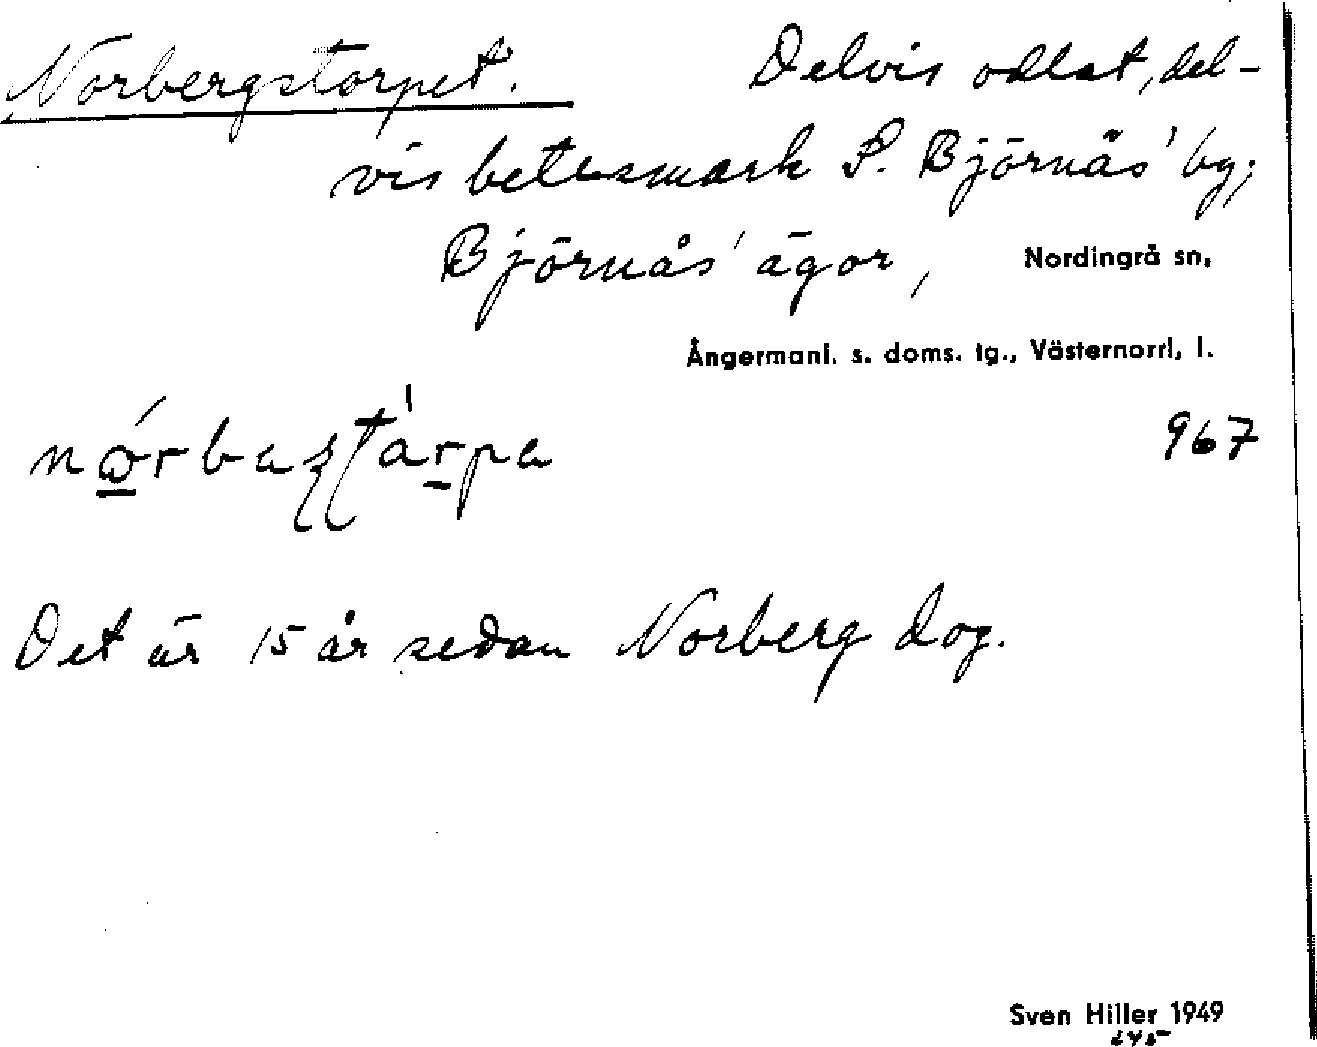 Norbergstorpet. Delvis odlat, del-
vis betesmark S. Björnäs' by;
Björnås' ägor, Nordingrå sn,
Ångermanl. s. doms. tg., Västernorrl. l.
967
Det är 15 år sedan Norberg dog.
Sven Hiller 1949